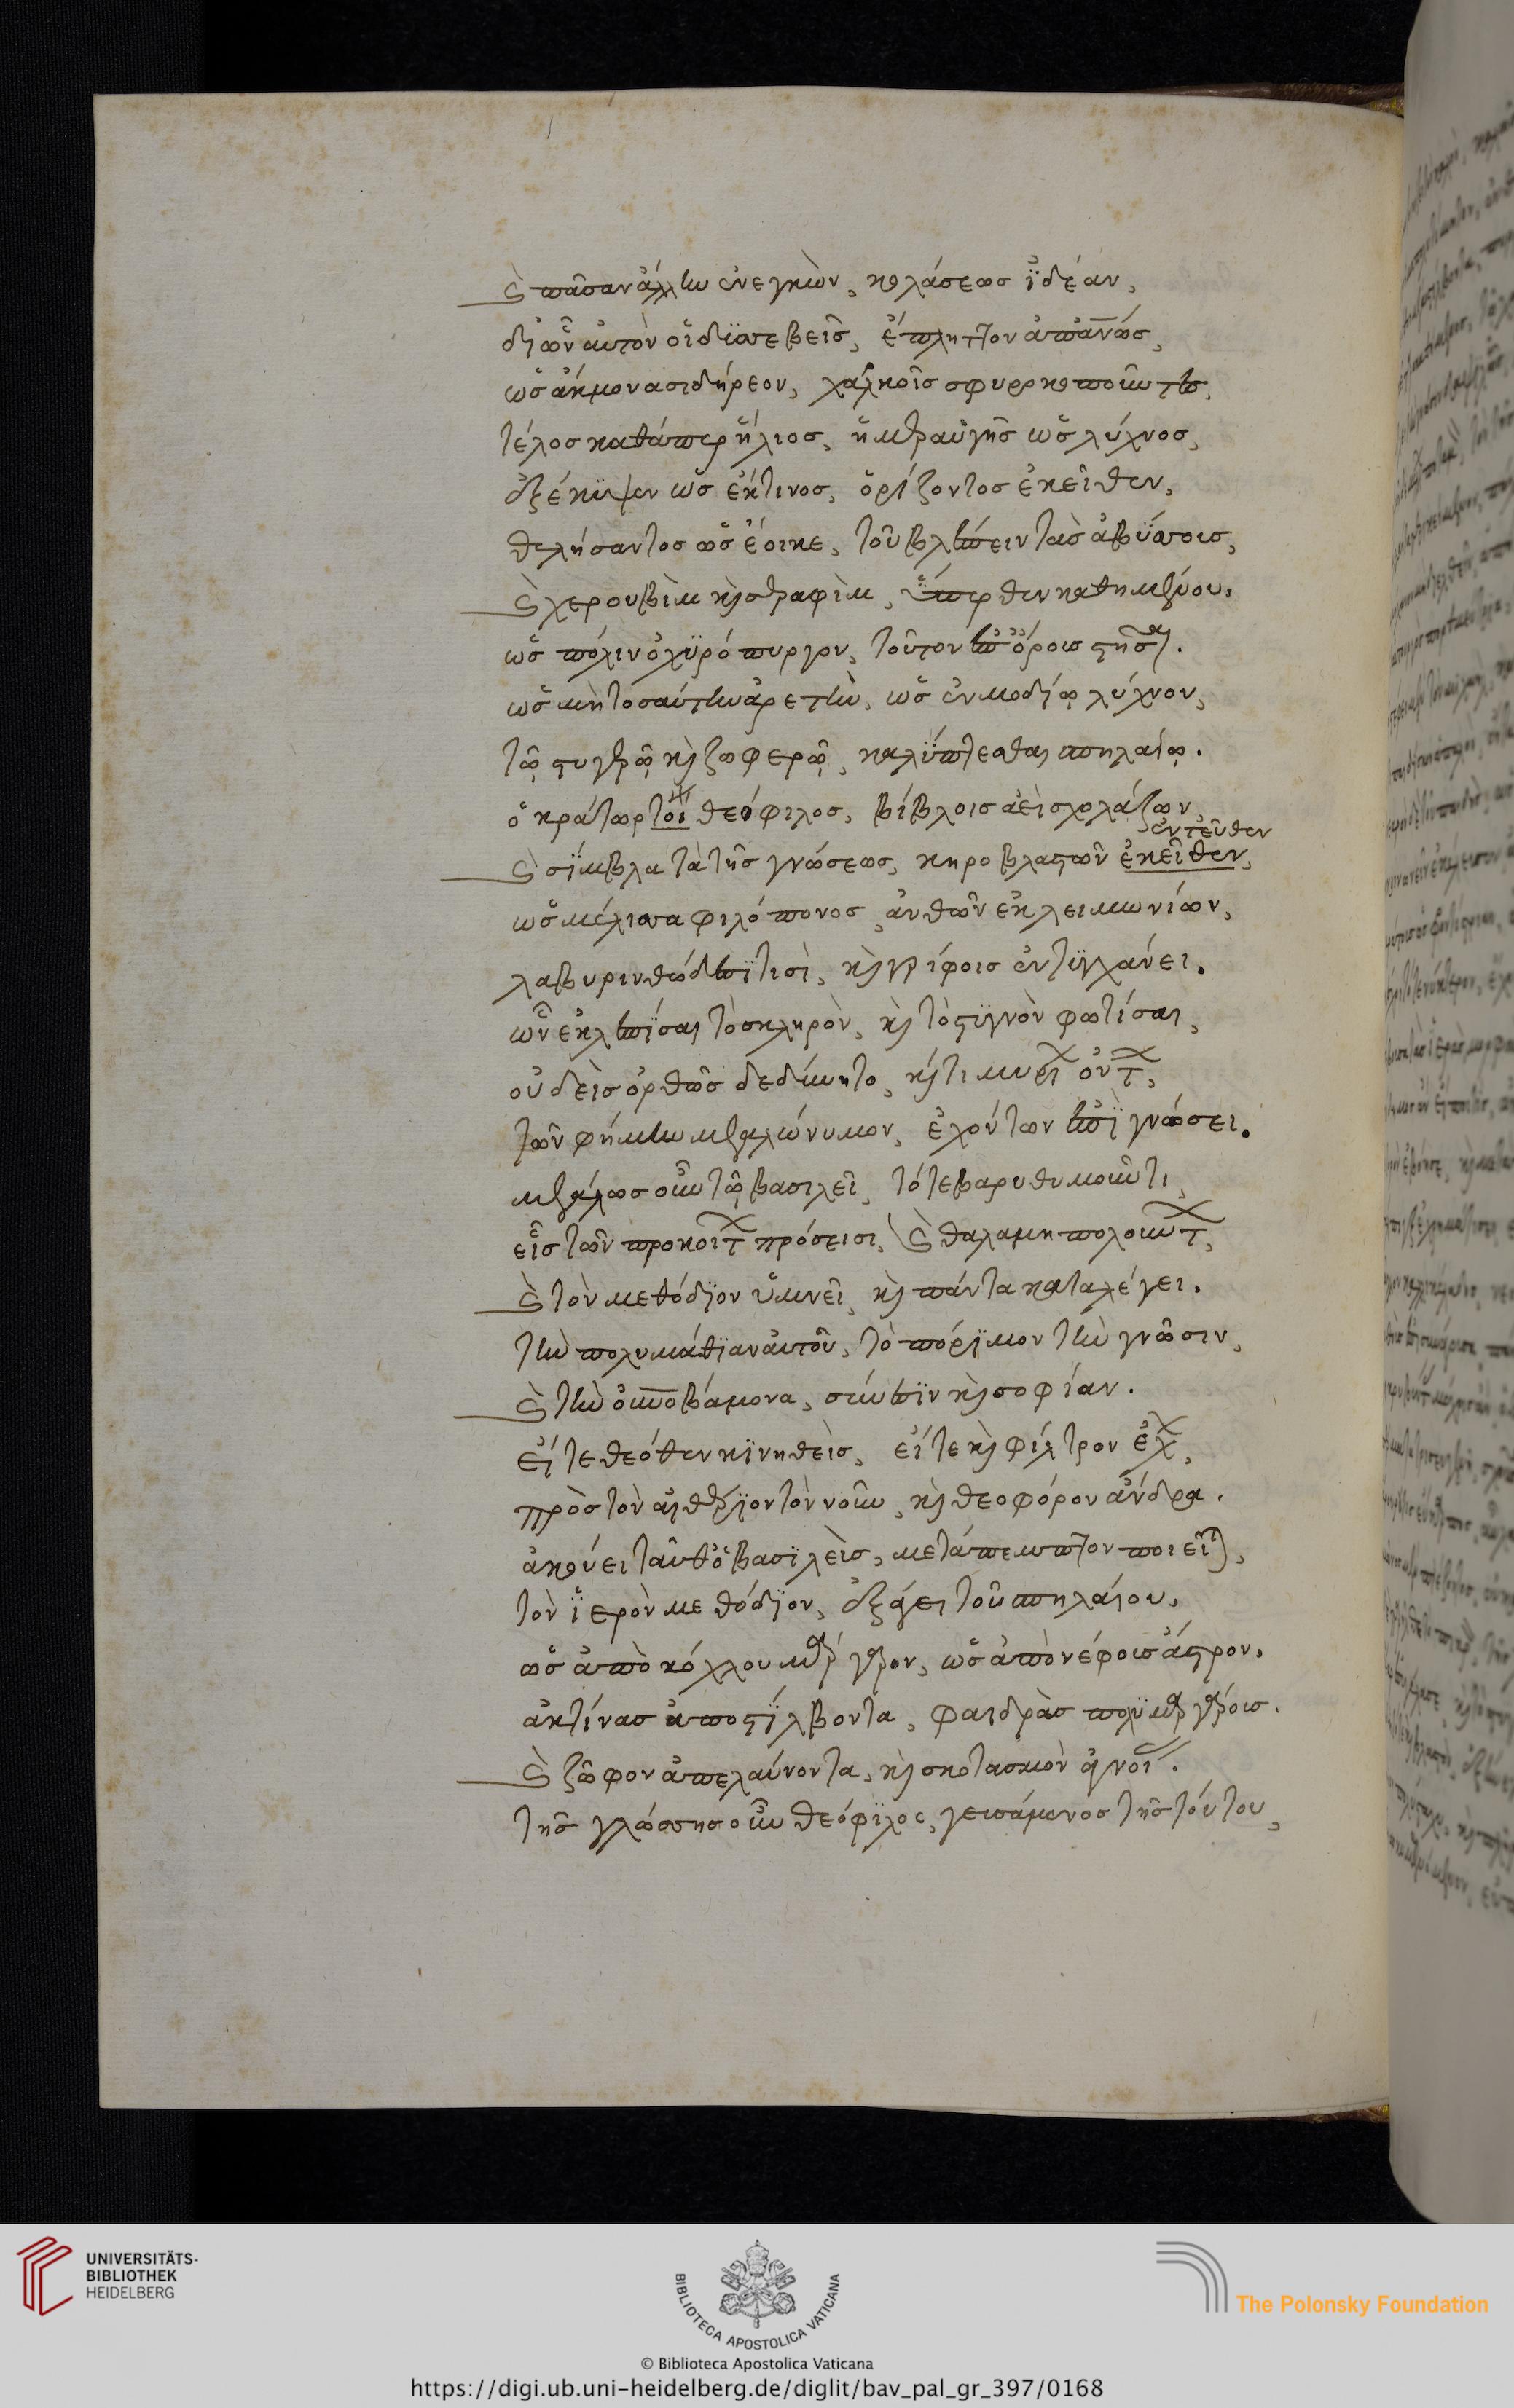 καὶ πᾶσαν ἄλλην ἐνεγκὼν, κολάσεως ἰδέαν,
δι ὧν αὐτὸν οἱ δυσσεβεῖς, ἔπληττον ἀπανώς,
ὡς ἄκμονα σιδήρεον, χαλκοῖς σφυροκοποῦντες,
τέλος καθάπερ ἥλιος, ἡμεραυγῆς ὡς λύχνος,
ἐξέκυψεν ὡς ἔκτινος, ὁρίζοντος ἐκεῖθεν,
θελήσαντος ὡς ἔοικε, τοῦ βλέπειν τὰς ἀβύσσους,
καὶ χερουβὶμ καὶ σεραφὶμ, ὕπερθεν καθημένου,
ὡς πόλιν ὀχυρόπυργον, τοῦτον ἐπ ὄρους στῆσαι.
ὡς μὴ τοσαύτην ἀρετὴν, ὡς ἐν μοδίῳ λύχνον,
τῷ στυγερῷ καὶ ζοφερῷ, καλύπτεσθαι σπηλαίῳ.
ὁ κράτωρ τοι θεόφιλος, βίβλοις ἀεὶ σχολάζων
ἐντεῦθεν
καὶ σίμβλα τὰ τῆς γνώσεως, κηροβλαστῶν ἐκεῖθεν,
ὡς μέλισσα φιλόπονος, ἀνθῶν ἐκ λειμωνίων,
λαβυρινθώδεσί τισὶ, καὶ γρίφοις ἐντυγχάνει.
ὧν ἐκλεπίσαι τὸ σκληρὸν, καὶ τὸ στυγνὸν φωτίσαι,
οὐδεὶς ὀρθῶς δεδύνητο, καί τι μυρίων ὄντων,
τῶν φήμην μεγαλώνυμον, ἐχόντων ἐπὶ γνώσει.
μεγάλως οὖν τῷ βασιλεῖ, τότε βαρυθυμοῦντι,
εἷς τῶν προκοίτων πρόσεισι, καὶ θαλαμηπολούντων,
καὶ τὸν μεθόδιον ὑμνεῖ, καὶ πάντα καταλέγει.
τὴν πολυμάθιαν αὐτοῦ, τὸ πόριμον τὴν γνῶσιν,
καὶ τὴν οὐνοβάμονα, σύνεσιν καὶ σοφίαν.
εἴτε θεόθεν κινηθεὶς, εἴτε καὶ φίλτρον ἔχων,
πρὸς τὸν αἰθέριον τὸν νοῦν, καὶ θεοφόρον ἄνδρα.
ἀκούει ταῦθ ὁ βασιλεὺς, μετάπεμπτον ποιεῖται,
τὸν ἱερὸν μεθόδιον, ἐξάγει τοῦ σπηλαίου,
ὡς ἀπὸ κόχλου μάργαρον, ὡς ἀπὸ νέφους ἄστρον.
ἀκτίνας ἀποστίλβοντα, φαιδρὰς πολυμαργάρους.
καὶ ζόφον ἀπελαύνοντα, καὶ σκοτασμὸν ἀγνοίας.
τῆς γλώσσης οὖν θεόφιλος, γευσάμενος τῆς τούτου,
UNIVERSITÄTS-
BIBLIOTHEK
HEIDELBERG
BIBLIOTECA APOSTOLICA VATICANA
The Polonsky Foundation
© Biblioteca Apostolica Vaticana
https://digi.ub.uni-heidelberg.de/diglit/bav_pal_gr_397/0168